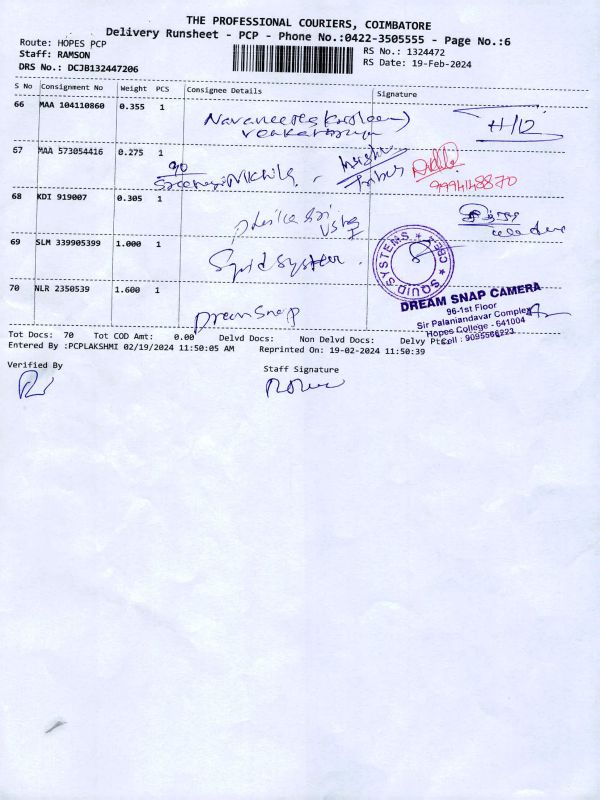 THE PROFESSIONAL COURIERS, COIMBATORE
Delivery Runsheet - PCP - Phone No.:0422-3505555 - Page No.:6
Route: HOPES PCP
Staff: RAMSON
DRS No.: DCJB132447206
RS No.: 1324472
RS Date: 19-Feb-2024
S No Consignment No Weight PCS Consignee Details Signature
66 MAA 104110860 0.355 1
H/O
67 MAA 573054416 0.275 1
9994148870
68 KDI 919007 0.305 1
69 SLM 339905399 1.000 1
Squid System
SQUID SYSTEMS * CBE *
70 NLR 2350539 1.600 1
Dream Snap
DREAM SNAP CAMERA
96-1st Floor
Sir Palaniandavar Complex
Hopes College - 641004
Cell : 9095566223
Tot Docs: 70 Tot COD Amt: 0.00 Delvd Docs: Non Delvd Docs: Delvy Ptc
Entered By :PCPLAKSHMI 02/19/2024 11:50:05 AM Reprinted On: 19-02-2024 11:50:39
Verified By
Staff Signature